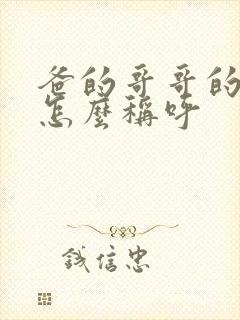 爸的哥哥的
怎麼稱呼
誠信忠